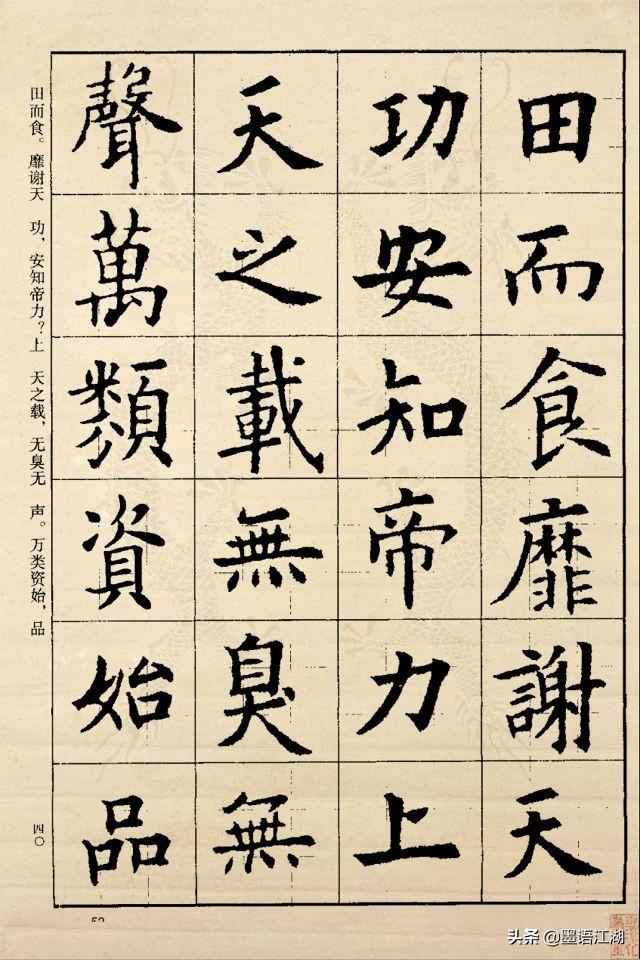 田而食靡謝天
功安知帝力上
天之載無臭無
聲萬類資始品
田而食。靡谢天　功，安知帝力？上　天之载，无臭无　声。万类资始，品
四〇
52
头条 @墨语江湖